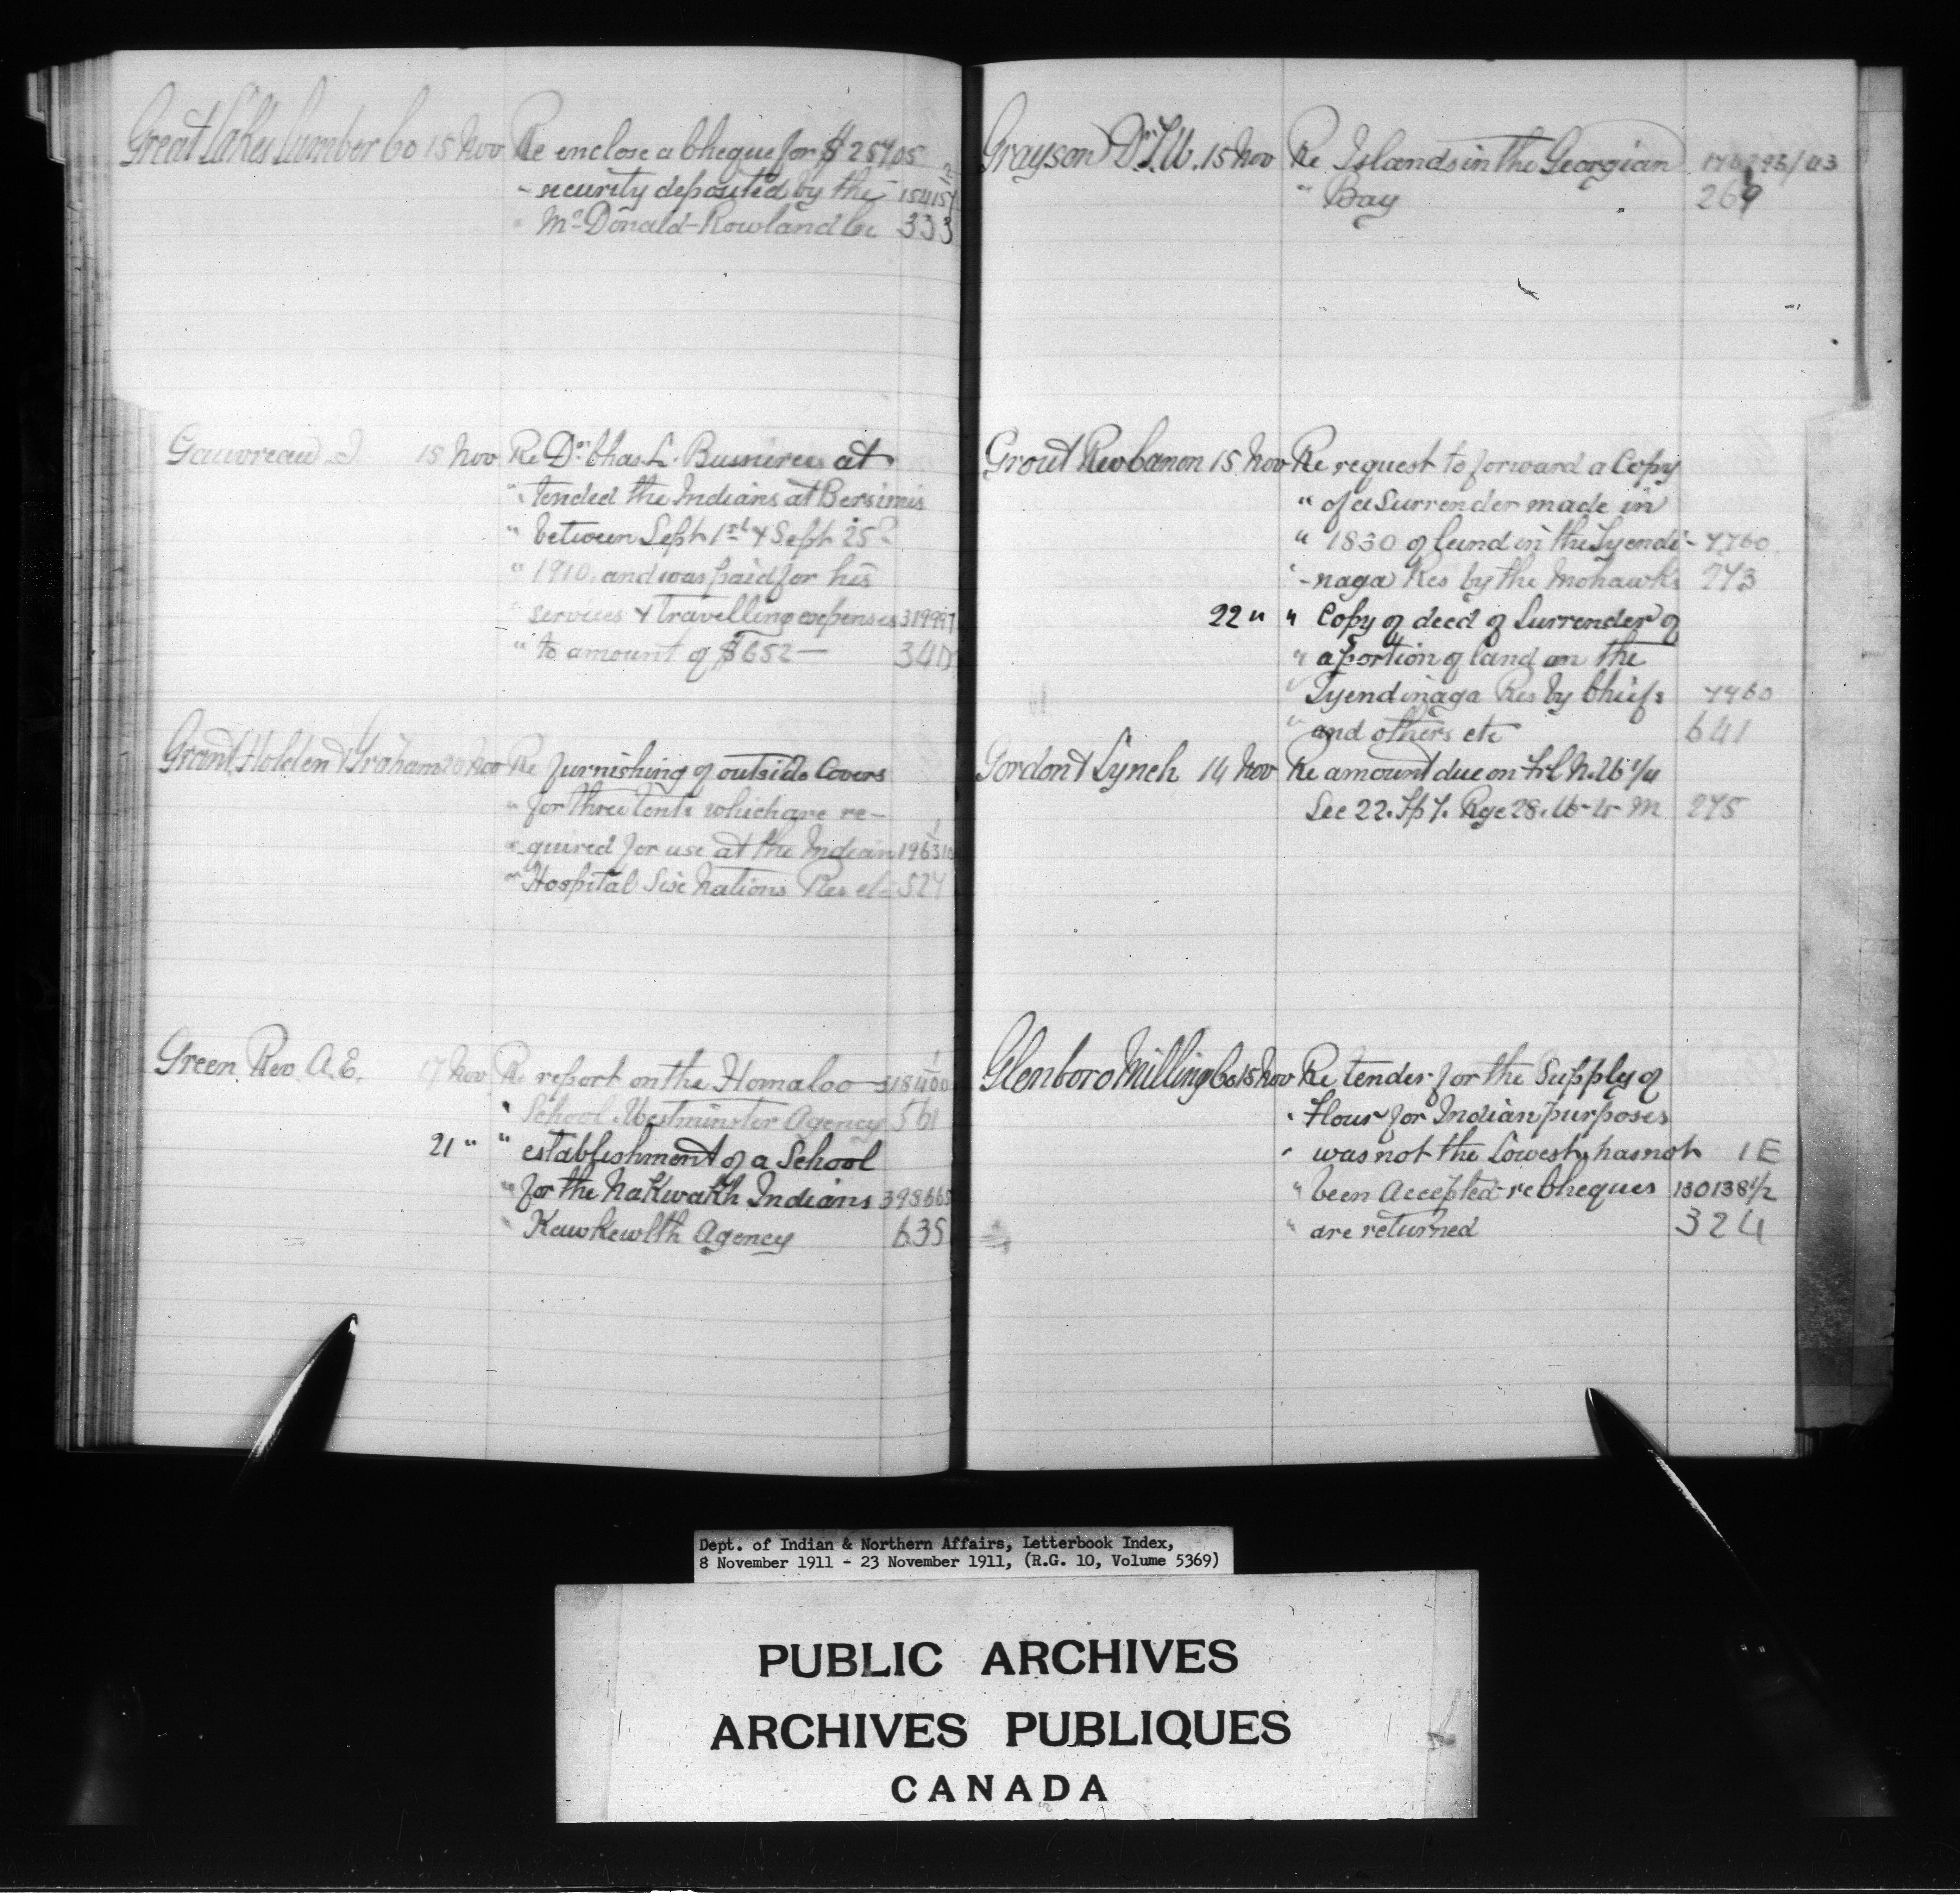 Great Lakes Lumber Co 15 Nov Re enclose a Cheque for $ 257,05
" security deposited by the 154157 1/2
" McDonald-Rowland Co 333
Gauvreau J. 15 Nov Re Dr Chas. L. Bussieres at
" tended the Indians at Bersimis
" between Sept 1st & Sept 25
" 1910, and was paid for his
" services & travelling expenses 319997
" to amount of $652— 340
Grant Holden & Graham 20 Nov Re furnishing of outside Covers
" for three tents which are re-
" quired for use at the Indian 196310
" Hospital Six Nations Res etc 527
Green Rev. A.E. 17 Nov Re report on the Homalco 318400
" School. Westminster Agency 561
21 " " establishment of a School
" for the Nakwakth Indians 398665
" Kawkewlth Agency 635
Grayson Dr T.W. 15 Nov Re Islands in the Georgian
" Bay 269
Grout Rev Canon 15 Nov Re request to forward a Copy
" of a Surrender made in
" 1830 of land in the Tyendi- 7760
" -naga Res by the Mohawks 273
22 " " Copy of deed of Surrender of
" a portion of land on the
" Tyendinaga Res by Chiefs 7760
" and others etc 641
Gordon & Lynch 14 Nov Re amount due on
Sec 22. Tp 7. Rge 28. W-2- M 275
Glenboro Milling Co 15 Nov Re tender for the Supply of
" Flour for Indian purposes
" was not the Lowest, has not 1E
" been Accepted - re Cheques 130138 1/2
" are returned 324
Dept. of Indian & Northern Affairs, Letterbook Index,
8 November 1911 - 23 November 1911, (R.G. 10, Volume 5369)
PUBLIC ARCHIVES
ARCHIVES PUBLIQUES
CANADA